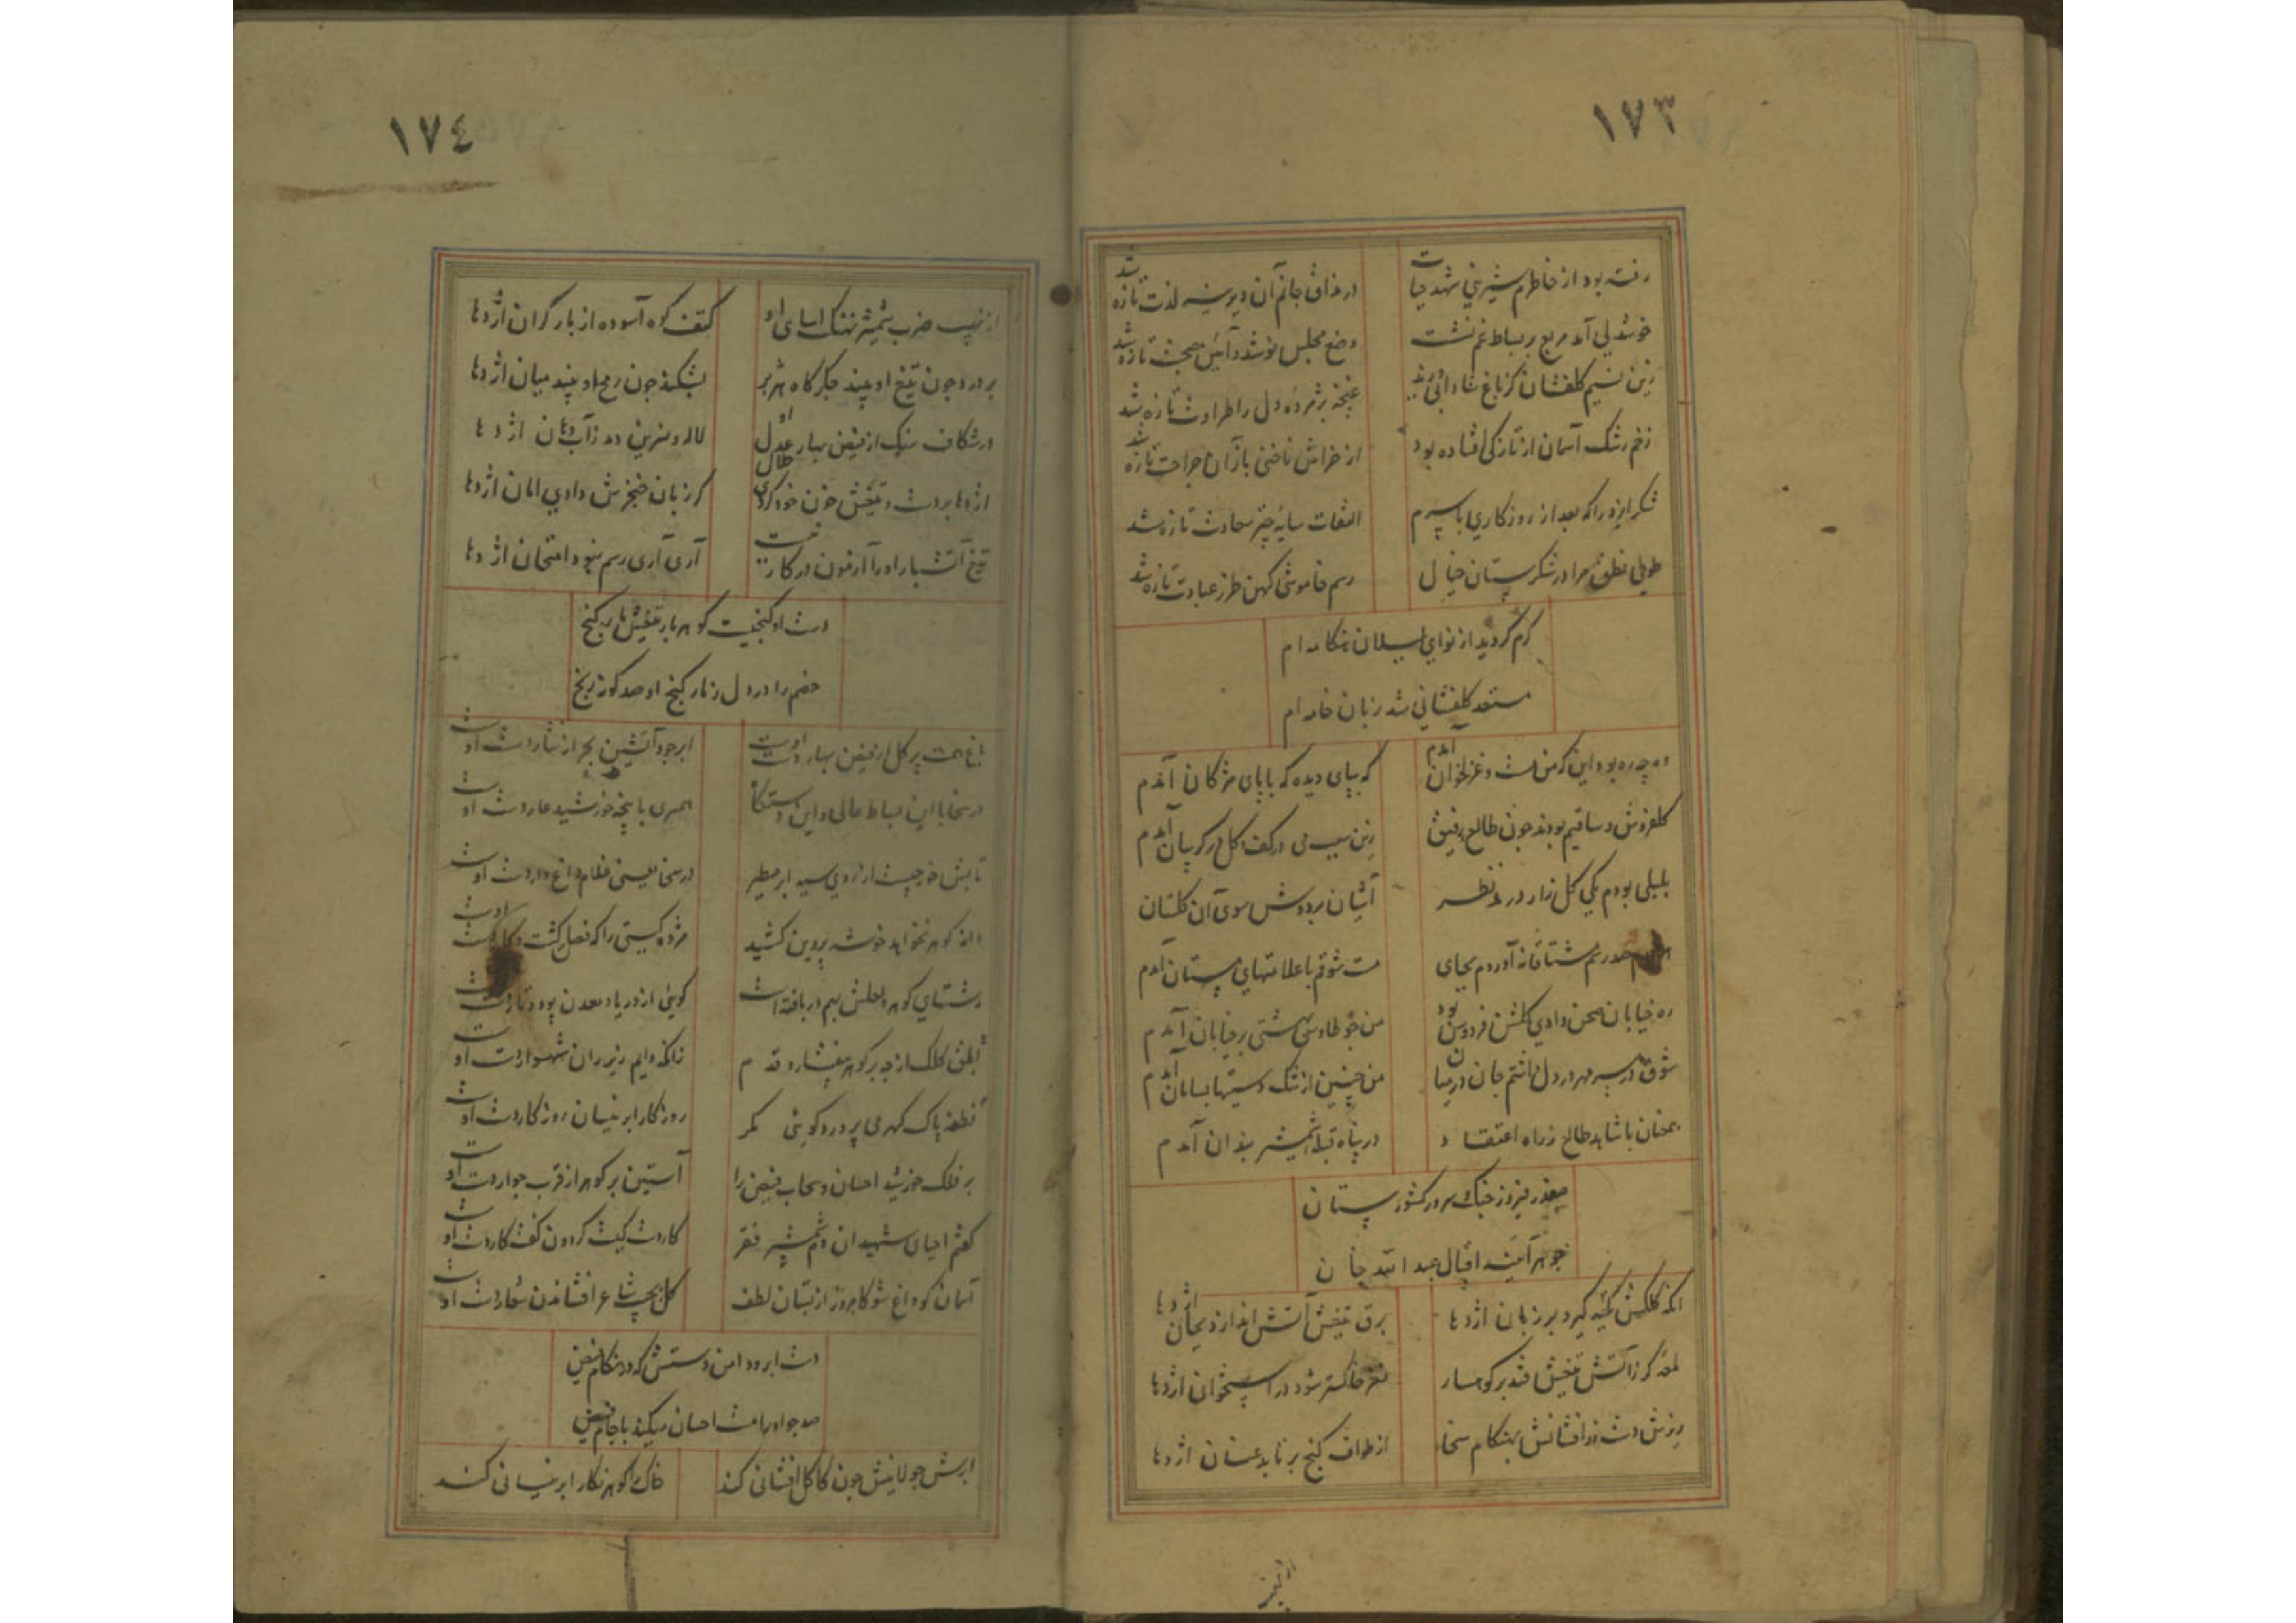 ١٧٣
رفته بود از خاطرم شیرینی شهد حیات
در مذاق جانم آن دیرینه لذت تازه شد
خوشدلی آمد مربع بر بساط غم نشست
وضع مجلس نو شد و آیین صحبت تازه شد
زین نسیم گلفشان کز باغ شادابی وزید
غنچهٔ پژمردهٔ دل را طراوت تازه شد
زخم رشک آسمان از تازکی افتاده بود
از خراش ناخنی باز آن جراحت تازه شد
شکر ایزد را که بعد از روزکاری با سرم
التفات سایهٔ چتر سعادت تازه شد
طوطی نطق مرا در شکرستان خیال
رسم خاموشی کهن طرز عبادت تازه شد
کرم کردید از نوای بلبلان هنکامه ام
مستعد کلفشانی شد زبان خامه ام
وه چه ره بود این که من مست و غزلخوان آمدم
که بپای دیده که با پای مژکان آمدم
کلفروش و ساقیم بودند جون طالع رفیق
زین سبب می در کف و کل در کریبان آمدم
بلبلی بودم یکی کلزار در مد نظر
آشیان بر دوش سوی آن کلستان
صد رسم مشتاقانه آوردم بجای
مست شوقم با علامتهای مستان آمدم
ره خیابان صحن وادی کلشن فردوس بود
من جو طاوس بهشتی بر خیابان آمدم
شوق در سر مهر در دل داشتم جان در میان
من جنین از تنک دستیها بسامان آمدم
همعنان با شاهد طالع ز راه اعتقاد
در پناه قبلهٔ شمشیر بندان آمدم
صفدر فیروز جنک سرور کشور ستان
جوهر آیینهٔ اقبال عبد الله خان
آنکه کلکش نکته کیرد بر زبان اژدها
برق تیغش آتش اندازد بجان اژدها
لمعهٔ کر ز آتش تیغش فتد بر کوهسار
مغز خاکستر شود در استخوان اژدها
ریزش دست زر افشانش بهنکام سخا
از طواف کنج برتابد عنان اژدها
١٧٤
از نهیب ضرب شمشیر نهنک آسای او
کتف کوه آسوده از بار کران اژدها
بر درد جون تیغ او بیند جکر کاه هژبر
بشکند جون رمح او بیند میان اژدها
در شکاف سنک از فیض بهار عدل او
لاله و نسرین دمد ز آب دهان اژدها
اژدها بر دست و تیغش خون خود کردی حلال
کر زبان خنجرش دادی امان اژدها
تیغ آتشبار او را آزمون در کار نیست
آری آری رسم نبود امتحان اژدها
دست او کنجیست کوهر بار تیغش مار کنج
خصم را در دل ز مار کنج او صد کونه رنج
باغ همت پر کل از فیض بهار دست اوست
ابر جود آتشین بحر از نثار دست اوست
در سخا با این بساط عالی و این دستکاه
همسری با پنجهٔ خورشید عار دست اوست
تابش خور جیست از روی سیه ابر مطیر
در سخا یعنی غلام داغدار دست اوست
دانهٔ کوهر نخواهد خوشهٔ پروین کشید
مژده کیتی را که فصل کشت و کار دست اوست
رشتهای کوهر و لعلش بهم در بافته است
کویی از دریا و معدن پود و تار دست اوست
ابلق کلک از جه بر کوهر نیفشارد قدم
زانکه دایم زیر ران شهسوار دست اوست
نطفهٔ پاک کهر می پرورد کویی مکر
روزکار ابر نیسان روزکار دست اوست
بر فلک خورشید احسان و سحاب فیض را
آستین پر کوهر از قرب جوار دست اوست
کفتم احیای شهیدان دم شمشیر فقر
کار دست کیست کردون کفت کار دست اوست
آسمان کو داغ شو کامروز از بستان لطف
کل بجیب شاعر افشاندن شعار دست اوست
دست ابر و دامن دستش که در هنکام فیض
صد جو او را مست احسان میکند با جام فیض
ابرش جولانیش جون کاکل افشانی کند
خاک را کوهر نکار ابر نیسانی کند